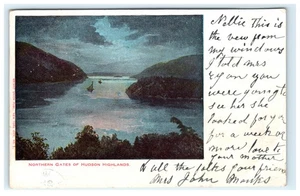 Nellie This is
the view from
my windows
I told Mrs
Ryan you
were going to
see her she
looked for you
for a week or
more love to
your mother
& all the folks your friend
Mrs John
NORTHERN GATES OF HUDSON HIGHLANDS